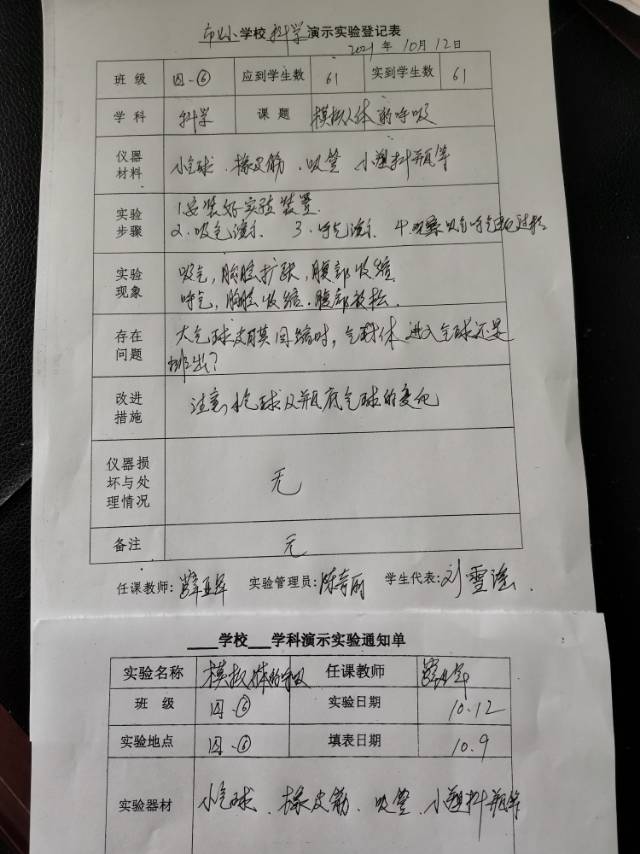 市北小学校 科学 演示实验登记表
2021年10月12日
班级 四.⑥ 应到学生数 61 实到学生数 61
学科 科学 课题 模拟人体的呼吸
仪器材料 小气球、橡皮筋、吸管 小塑料瓶等
实验步骤 1.安装好实验装置.
2.吸气演示 3.呼气演示 4.观察吸气呼气变化过程
实验现象 吸气,胸腔扩张,腹部收缩
呼气,胸腔收缩.腹部放松.
存在问题 大气球皮膜回缩时,气球体进入气球还是
排出?
改进措施 注意小气球及瓶底气球的变化
仪器损坏与处理情况 无
备注 无
任课教师: 实验管理员: 学生代表:刘雪
____学校___学科演示实验通知单
实验名称 模拟人体的呼吸 任课教师
班级 四.⑥ 实验日期 10.12
实验地点 四.⑥ 填表日期 10.9
实验器材 小气球、橡皮筋、吸管、小塑料瓶等